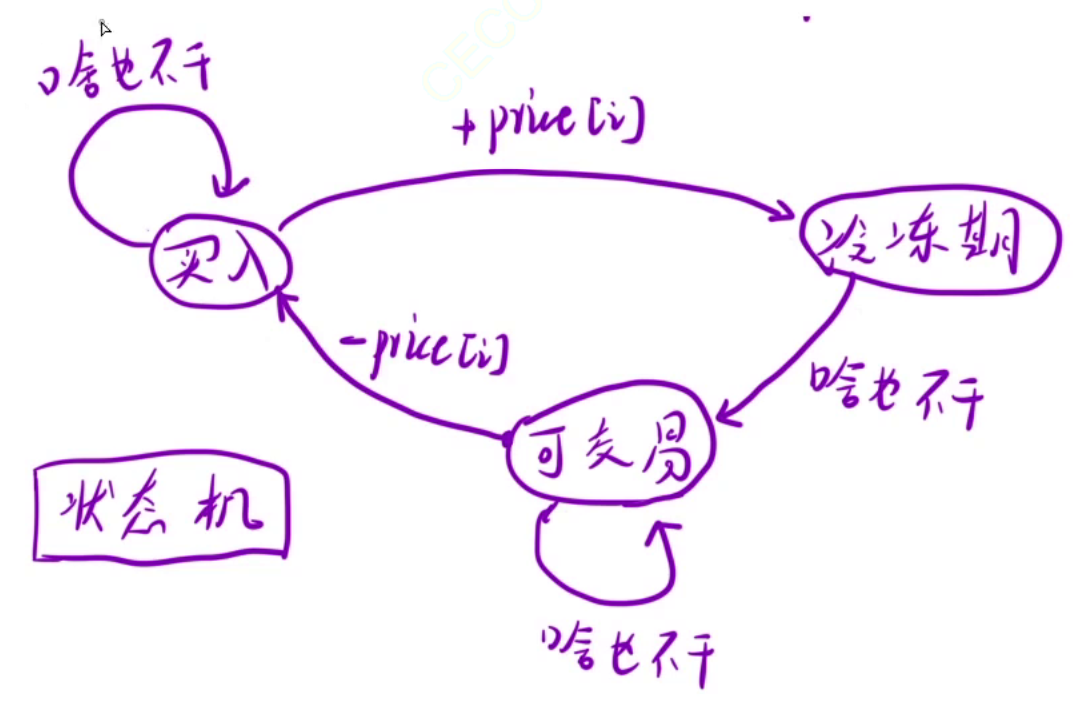 啥也不干
+price[i]
买入
冷冻期
-price[i]
啥也不干
可交易
状态机
啥也不干